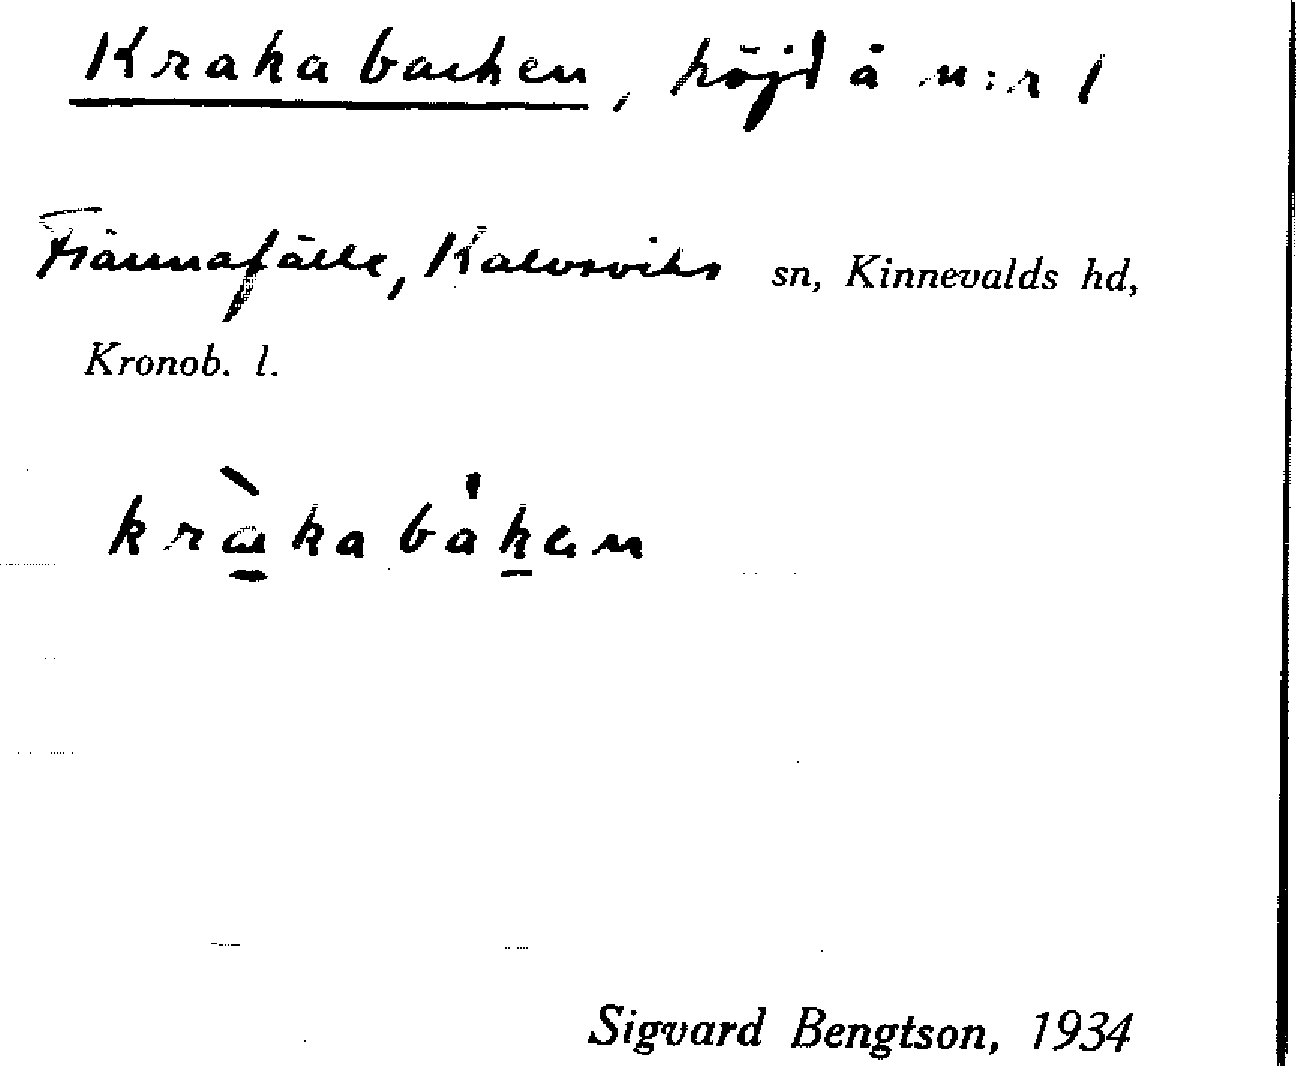 Krakabacken, höjd å n:r 1
Frännafälle, Kalvsviks sn, Kinnevalds hd,
Kronob. l.
kràkabákan
Sigvard Bengtson, 1934